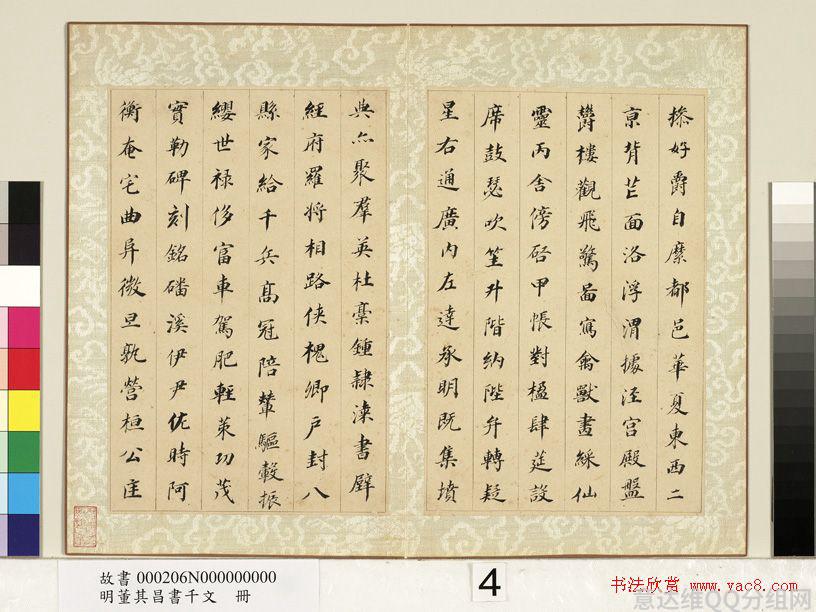 操好爵自縻都邑華夏東西二
亰背芒面洛浮渭據涇宮殿盤
鬱樓觀飛驚圖寫禽獸畫綵仙
靈丙舍傍啟甲帳對楹肆筵設
席鼓瑟吹笙升階納陛弁轉疑
星右通廣內左達承明既集墳
典亦聚羣英杜稾鍾隸漆書壁
經府羅將相路俠槐卿戶封八
縣家給千兵高冠陪輦驅轂振
纓世祿侈富車駕肥輕策功茂
實勒碑刻銘磻溪伊尹佐時阿
衡奄宅曲阜微旦孰營桓公匡
故書 000206N000000000
明董其昌書千文 冊
4
书法欣赏 www.yac8.com
意达维QQ分组网